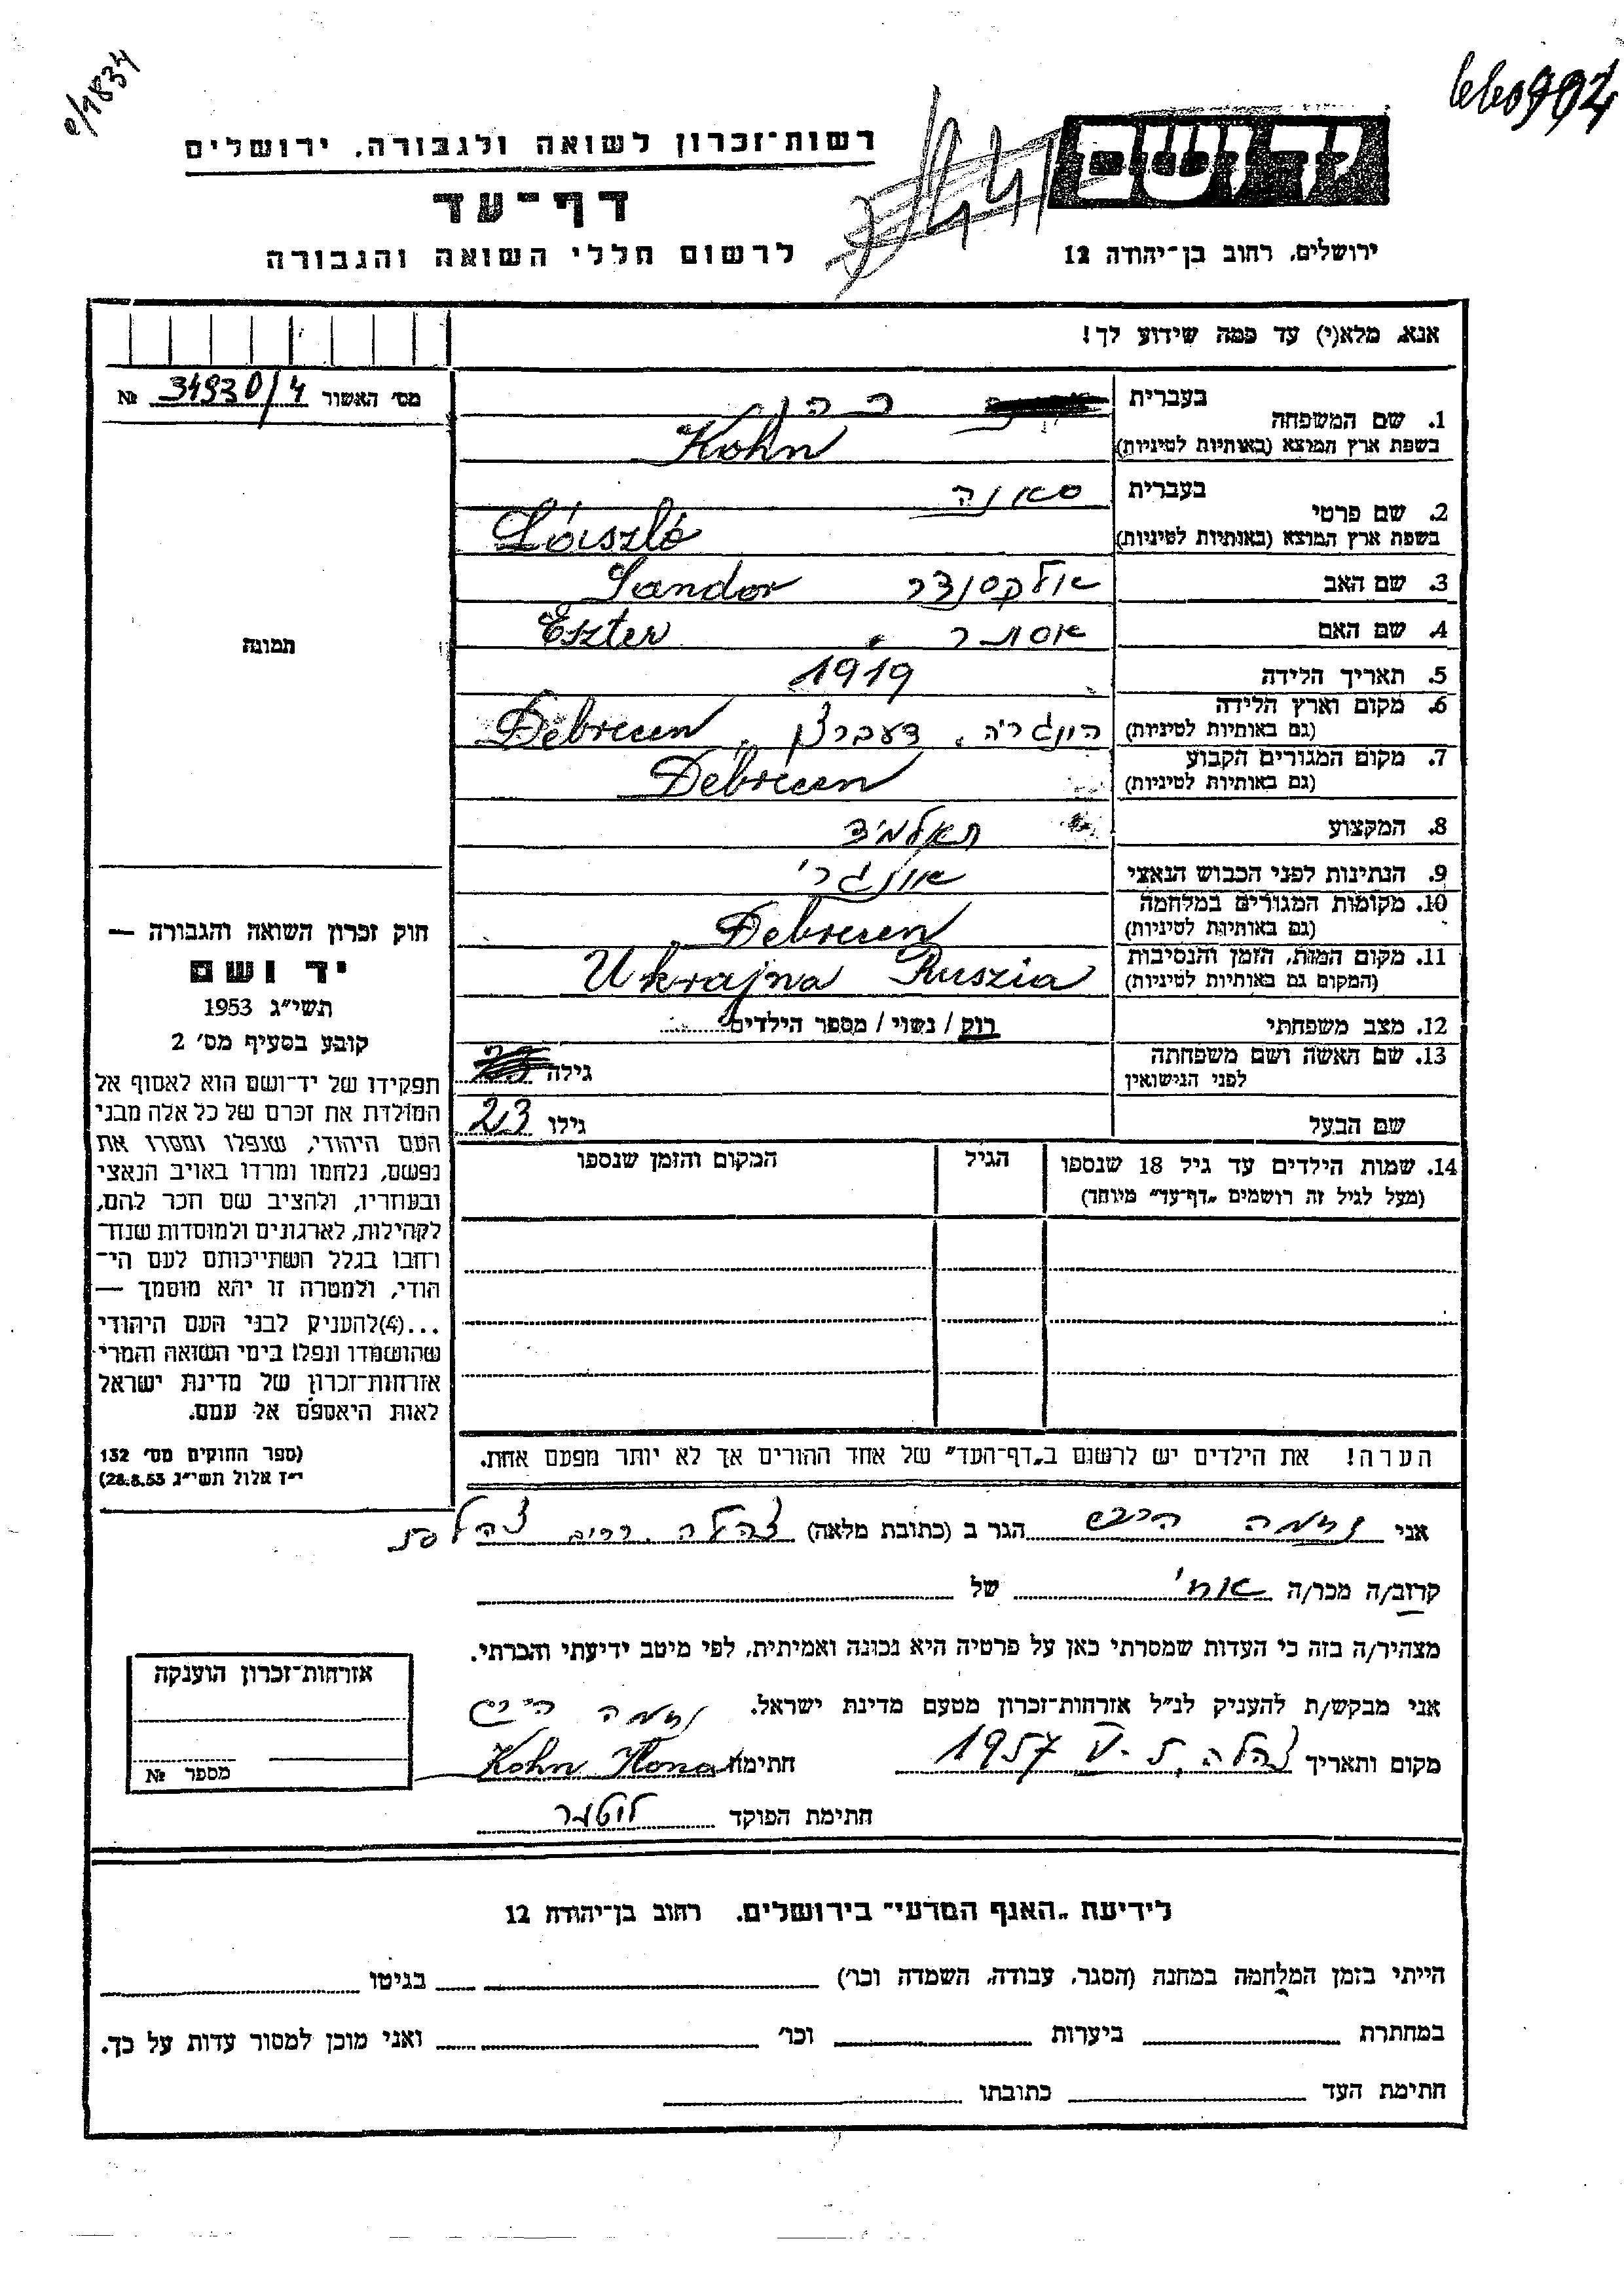 e/1834
רשות־זכרון לשואה ולגבורה, ירושלים
יד ושם
דף־עד
לרשום חללי השואה והגבורה
ירושלים, רחוב בן־יהודה 12
אנא, מלא(י) עד כמה שידוע לך!
מס׳ האשור 34930/4 №
1. שם המשפחה
בעברית כהן
בשפת ארץ המוצא (באותיות לטיניות) Kohn
2. שם פרטי
בעברית
בשפת ארץ המוצא (באותיות לטיניות) László
3. שם האב אלקסנדר Sandor
4. שם האם אסתר Eszter
5. תאריך הלידה 1919
6. מקום וארץ הלידה
(גם באותיות לטיניות) הונגריה, דעברצן, Debrecen
7. מקום המגורים הקבוע
(גם באותיות לטיניות) Debrecen
8. המקצוע תאלמיד
9. הנתינות לפני הכבוש הנאצי אונגרי
10. מקומות המגורים במלחמה
(גם באותיות לטיניות) Debrecen
11. מקום המות, הזמן והנסיבות
(המקום גם באותיות לטיניות) Ukrajna Ruszia
12. מצב משפחתי רוק / נשוי / מספר הילדים
13. שם האשה ושם משפחתה
לפני הנישואין גילה
שם הבעל גילו 23
14. שמות הילדים עד גיל 18 שנספו הגיל המקום והזמן שנספו
(מעל לגיל זה רושמים „דף־עד" מיוחד)
הערה! את הילדים יש לרשום ב„דף־העד" של אחד ההורים אך לא יותר מפעם אחת.
תמונה
חוק זכרון השואה והגבורה —
יד ושם
תשי״ג 1953
קובע בסעיף מס׳ 2
תפקידו של יד־ושם הוא לאסוף אל
המולדת את זכרם של כל אלה מבני
העם היהודי, שנפלו ומסרו את
נפשם, נלחמו ומרדו באויב הנאצי
ובעוזריו, ולהציב שם וזכר להם,
לקהילות, לארגונים ולמוסדות שנח־
רבו בגלל השתייכותם לעם הי־
הודי, ולמטרה זו יהא מוסמך —
...(4) להעניק לבני העם היהודי
שהושמדו ונפלו בימי השואה והמרי
אזרחות־זכרון של מדינת ישראל
לאות היאספם אל עמם.
(ספר החוקים מס׳ 132
י״ז אלול תשי״ג 28.8.53)
אני הגר ב (כתובת מלאה) צהלה
קרוב/ה מכר/ה אחי של
מצהיר/ה בזה כי העדות שמסרתי כאן על פרטיה היא נכונה ואמיתית, לפי מיטב ידיעתי והכרתי.
אני מבקש/ת להעניק לנ״ל אזרחות־זכרון מטעם מדינת ישראל.
מקום ותאריך צהלה, 5-V 1957 חתימה Kohn Ilona
חתימת הפוקד
אזרחות־זכרון הוענקה
מספר №
לידיעת „האגף המדעי" בירושלים, רחוב בן־יהודה 12
הייתי בזמן המלחמה במחנה (הסגר, עבודה, השמדה וכו׳) בגיטו
במחתרת ביערות וכו׳ ואני מוכן למסור עדות על כך.
חתימת העד כתובתו